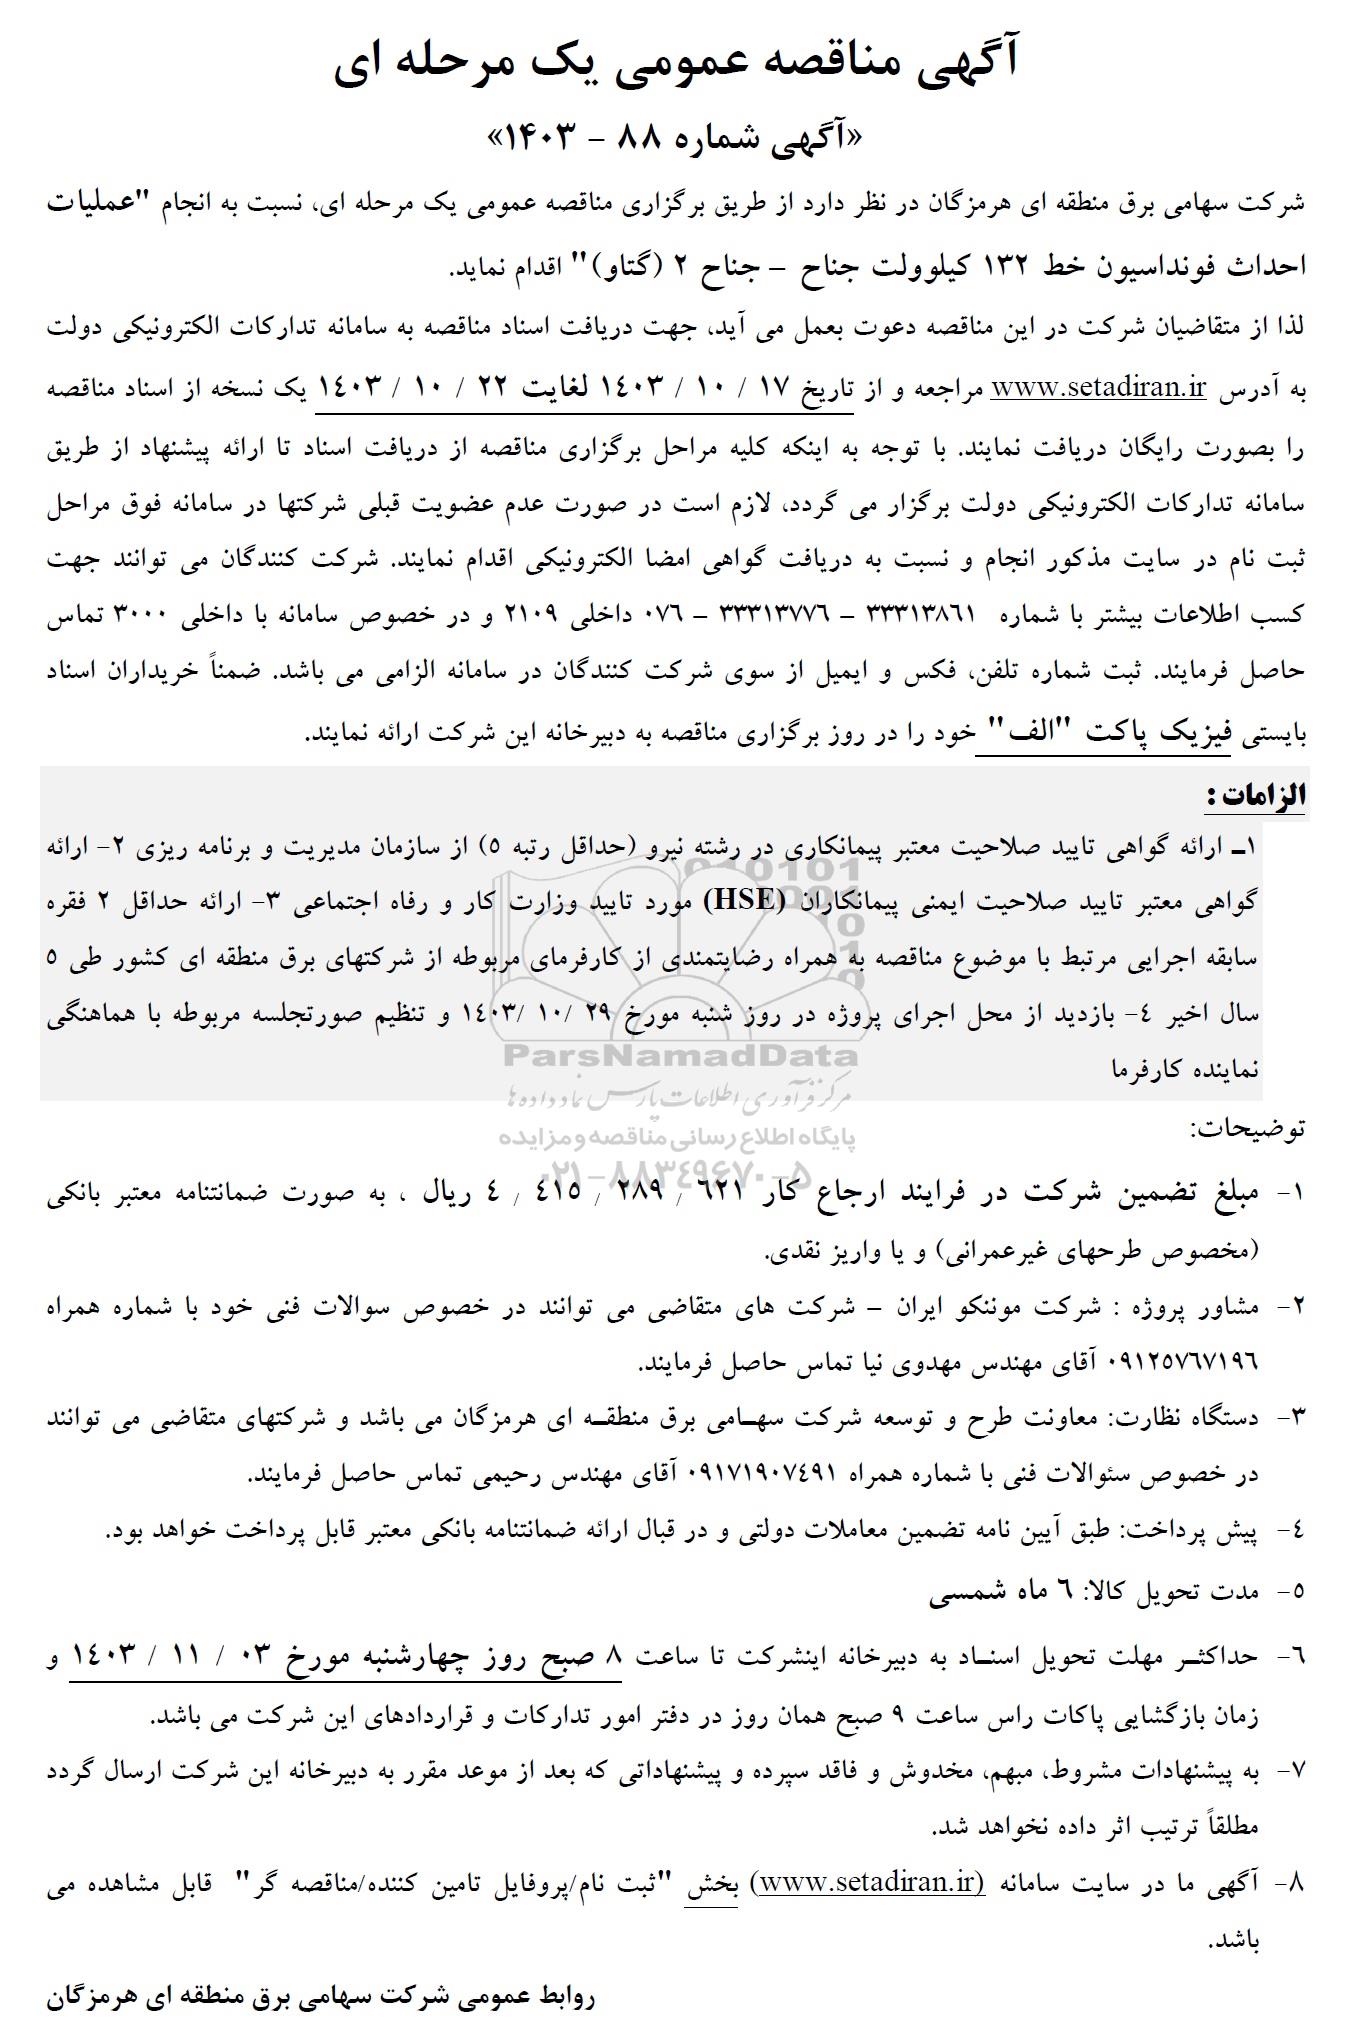 آگهی مناقصه عمومی یک مرحله ای
«آگهی شماره ۸۸ – ۱۴۰۳»
شرکت سهامی برق منطقه ای هرمزگان در نظر دارد از طریق برگزاری مناقصه عمومی یک مرحله ای، نسبت به انجام "عملیات
احداث فونداسیون خط ۱۳۲ کیلوولت جناح – جناح ۲ (گتاو)" اقدام نماید.
لذا از متقاضیان شرکت در این مناقصه دعوت بعمل می آید، جهت دریافت اسناد مناقصه به سامانه تدارکات الکترونیکی دولت
به آدرس www.setadiran.ir مراجعه و از تاریخ ۱۷ / ۱۰ / ۱۴۰۳ لغایت ۲۲ / ۱۰ / ۱۴۰۳ یک نسخه از اسناد مناقصه
را بصورت رایگان دریافت نمایند. با توجه به اینکه کلیه مراحل برگزاری مناقصه از دریافت اسناد تا ارائه پیشنهاد از طریق
سامانه تدارکات الکترونیکی دولت برگزار می گردد، لازم است در صورت عدم عضویت قبلی شرکتها در سامانه فوق مراحل
ثبت نام در سایت مذکور انجام و نسبت به دریافت گواهی امضا الکترونیکی اقدام نمایند. شرکت کنندگان می توانند جهت
کسب اطلاعات بیشتر با شماره ۳۳۳۱۳۸۶۱ – ۳۳۳۱۳۷۷۶ – ۰۷۶ داخلی ۲۱۰۹ و در خصوص سامانه با داخلی ۳۰۰۰ تماس
حاصل فرمایند. ثبت شماره تلفن، فکس و ایمیل از سوی شرکت کنندگان در سامانه الزامی می باشد. ضمناً خریداران اسناد
بایستی فیزیک پاکت "الف" خود را در روز برگزاری مناقصه به دبیرخانه این شرکت ارائه نمایند.
الزامات :
۱ـ ارائه گواهی تایید صلاحیت معتبر پیمانکاری در رشته نیرو (حداقل رتبه ۵) از سازمان مدیریت و برنامه ریزی ۲- ارائه
گواهی معتبر تایید صلاحیت ایمنی پیمانکاران (HSE) مورد تایید وزارت کار و رفاه اجتماعی ۳- ارائه حداقل ۲ فقره
سابقه اجرایی مرتبط با موضوع مناقصه به همراه رضایتمندی از کارفرمای مربوطه از شرکتهای برق منطقه ای کشور طی ۵
سال اخیر ۴- بازدید از محل اجرای پروژه در روز شنبه مورخ ۲۹ /۱۰ /۱۴۰۳ و تنظیم صورتجلسه مربوطه با هماهنگی
نماینده کارفرما
ParsNamadData
مرکز فرآوری اطلاعات پارس نماد داده ها
پایگاه اطلاع رسانی مناقصه و مزایده
۰۲۱-۸۸۳۴۹۶۷۰-۵
توضیحات:
۱- مبلغ تضمین شرکت در فرایند ارجاع کار ۶۲۱ / ۲۸۹ / ۴۱۵ / ۴ ریال ، به صورت ضمانتنامه معتبر بانکی
(مخصوص طرحهای غیرعمرانی) و یا واریز نقدی.
۲- مشاور پروژه : شرکت موننکو ایران – شرکت های متقاضی می توانند در خصوص سوالات فنی خود با شماره همراه
۰۹۱۲۵۷۶۷۱۹۶ آقای مهندس مهدوی نیا تماس حاصل فرمایند.
۳- دستگاه نظارت: معاونت طرح و توسعه شرکت سهـامی برق منطقـه ای هرمزگان می باشد و شرکتهای متقاضی می توانند
در خصوص سئوالات فنی با شماره همراه ۰۹۱۷۱۹۰۷۴۹۱ آقای مهندس رحیمی تماس حاصل فرمایند.
۴- پیش پرداخت: طبق آیین نامه تضمین معاملات دولتی و در قبال ارائه ضمانتنامه بانکی معتبر قابل پرداخت خواهد بود.
۵- مدت تحویل کالا: ۶ ماه شمسی
۶- حداکثـر مهلت تحویل اسنـاد به دبیرخانه اینشرکت تا ساعت ۸ صبح روز چهارشنبه مورخ ۰۳ / ۱۱ / ۱۴۰۳ و
زمان بازگشایی پاکات راس ساعت ۹ صبح همان روز در دفتر امور تدارکات و قراردادهای این شرکت می باشد.
۷- به پیشنهادات مشروط، مبهم، مخدوش و فاقد سپرده و پیشنهاداتی که بعد از موعد مقرر به دبیرخانه این شرکت ارسال گردد
مطلقاً ترتیب اثر داده نخواهد شد.
۸- آگهی ما در سایت سامانه (www.setadiran.ir) بخش "ثبت نام/پروفایل تامین کننده/مناقصه گر" قابل مشاهده می
باشد.
روابط عمومی شرکت سهامی برق منطقه ای هرمزگان